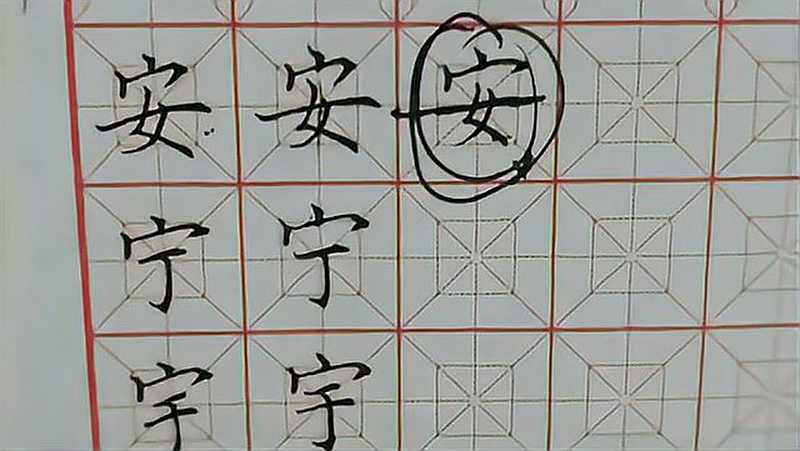 安安安
宁宁
宇宇